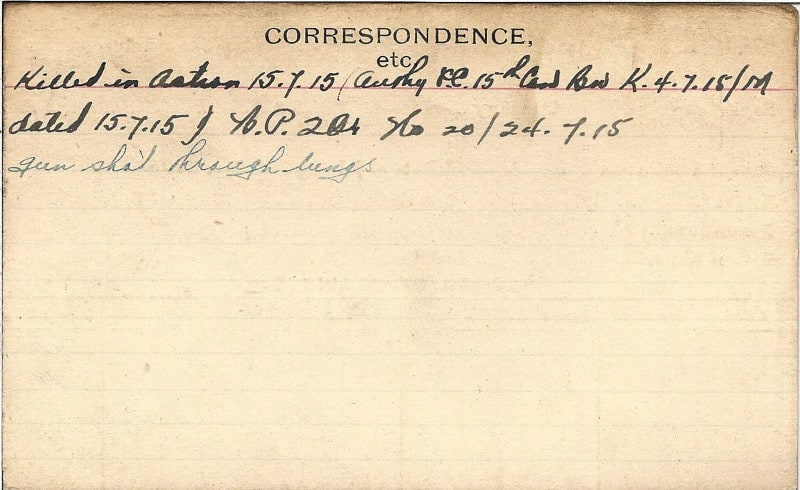 CORRESPONDENCE,
etc
Killed in Action 15.7.15 (Authy 15th Can Bn K. 4.7.15/M
dated 15.7.15) No 20/24.7.15
gun shot through lungs